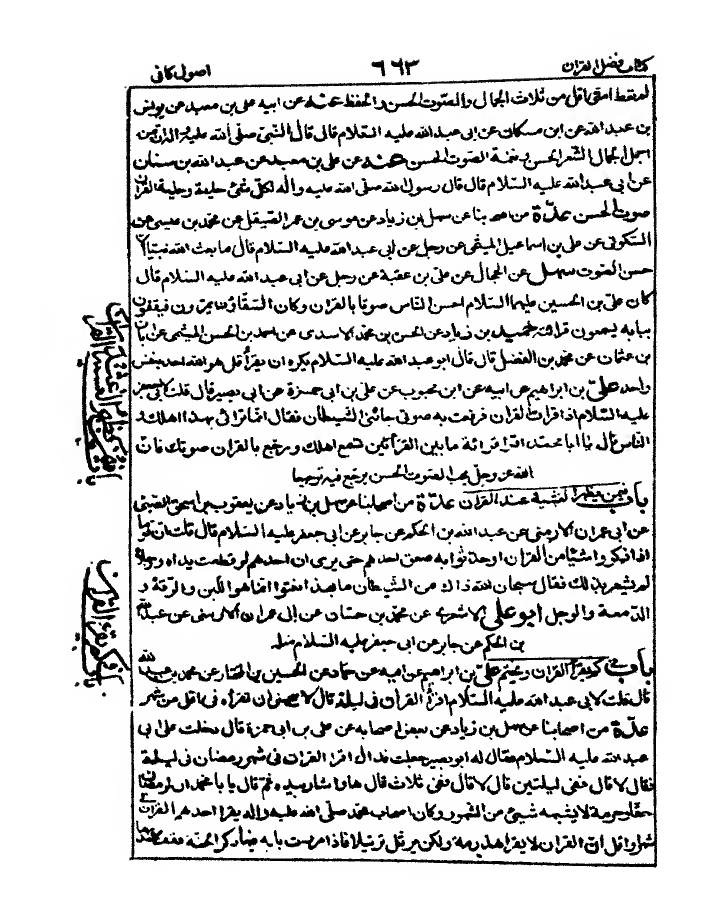 كتاب فضل القران ٦٦٣ اصول كافى
لم يعط امتى اقل من ثلاث الجمال والصوت الحسن والحفظ عنه عن ابيه على بن معبد عن يونس
بن عبد الله عن ابن مسكان عن ابى عبد الله عليه السلام قال قال النبى صلى الله عليه واله ان من
اجمل الجمال الشعر الحسن ونغمة الصوت الحسن عنه عن على بن معبد عن عبد الله بن سنان
عن ابى عبد الله عليه السلام قال قال رسول الله صلى الله عليه واله لكل شئ حلية وحلية القران
صوت الحسن عدّة من اصحابنا عن سهل بن زياد عن موسى بن عمر الصيقل عن محمد بن عيسى عن
السكونى عن على بن اسماعيل الميثمى عن رجل عن ابى عبد الله عليه السلام قال ما بعث الله نبيّا الّا
حسن الصوت سهل عن الحجال عن على بن عقبة عن رجل عن ابى عبد الله عليه السلام قال
كان على بن الحسين عليهما السلام احسن الناس صوتا بالقران وكان السقاؤن يمرون فيقفون
ببابه يسمعون قرائته حميد بن زياد عن الحسن بن محمد الاسدى عن احمد بن الحسن الميثمى عن ابان
بن عثمان عن محمد بن الفضل قال قال ابو عبد الله عليه السلام يكره ان يقرأ قل هو الله احد بنفس
واحد على بن ابراهيم عن ابيه عن ابن محبوب عن على بن ابى حمزة عن ابى بصير قال قلت لابى جعفر
عليه السلام اذا قرات القران فرفعت به صوتى جائنى الشيطان فقال انما ترائى بهذا اهلك و
الناس قال يا ابا محمد اقرا قرائة ما بين القرائتين تسمع اهلك ورجّع بالقران صوتك فانّ
الله عز وجل يحبّ الصوت الحسن يرجّع فيه ترجيعا
باب فيمن يظهر الغشية عند القران عدّة من اصحابنا عن سهل بن زياد عن يعقوب بن اسحق الضبّى
عن ابى عمران الارمنى عن عبد الله بن الحكم عن جابر عن ابى جعفر عليه السلام قال قلت ان قوما
اذا ذكروا شيئا من القران او حدّثوا به صعق احدهم حتى يرى ان احدهم لو قطعت يداه ورجلاه
لم يشعر بذلك فقال سبحان الله ذاك من الشيطان ما بهذا نعتوا انما هو اللين والرقة و
الدمعة والوجل ابو على الاشعرى عن محمد بن حسّان عن ابى عمران الارمنى عن عبد الله
بن الحكم عن جابر عن ابى جعفر عليه السلام مثله
باب فى كم يقرأ القران ويختم على بن ابراهيم عن ابيه عن حماد عن الحسين بن المختار عن محمد بن عبد الله
قال قلت لابى عبد الله عليه السلام اقرأ القران فى ليلة قال لا يعجبنى ان تقرأه فى اقل من شهر
عدّة من اصحابنا عن سهل بن زياد عن بعض اصحابه عن على بن ابى حمزة قال دخلت على ابى
عبد الله عليه السلام فقال له ابو بصير جعلت فداك اقرا القران فى شهر رمضان فى ليلة
فقال لا قال ففى ليلتين قال لا قال ففى ثلاث قال ها واشار بيده ثم قال يا با محمد ان لرمضان
حقا وحرمة لا يشبهه شيئ من الشهور وكان اصحاب محمد صلى الله عليه واله يقرا احدهم القران فى
شهر او اقل انّ القران لا يقرا هذرمة ولكن يرتّل ترتيلا فاذا مررت باية فيها ذكر الجنة فقف عندها